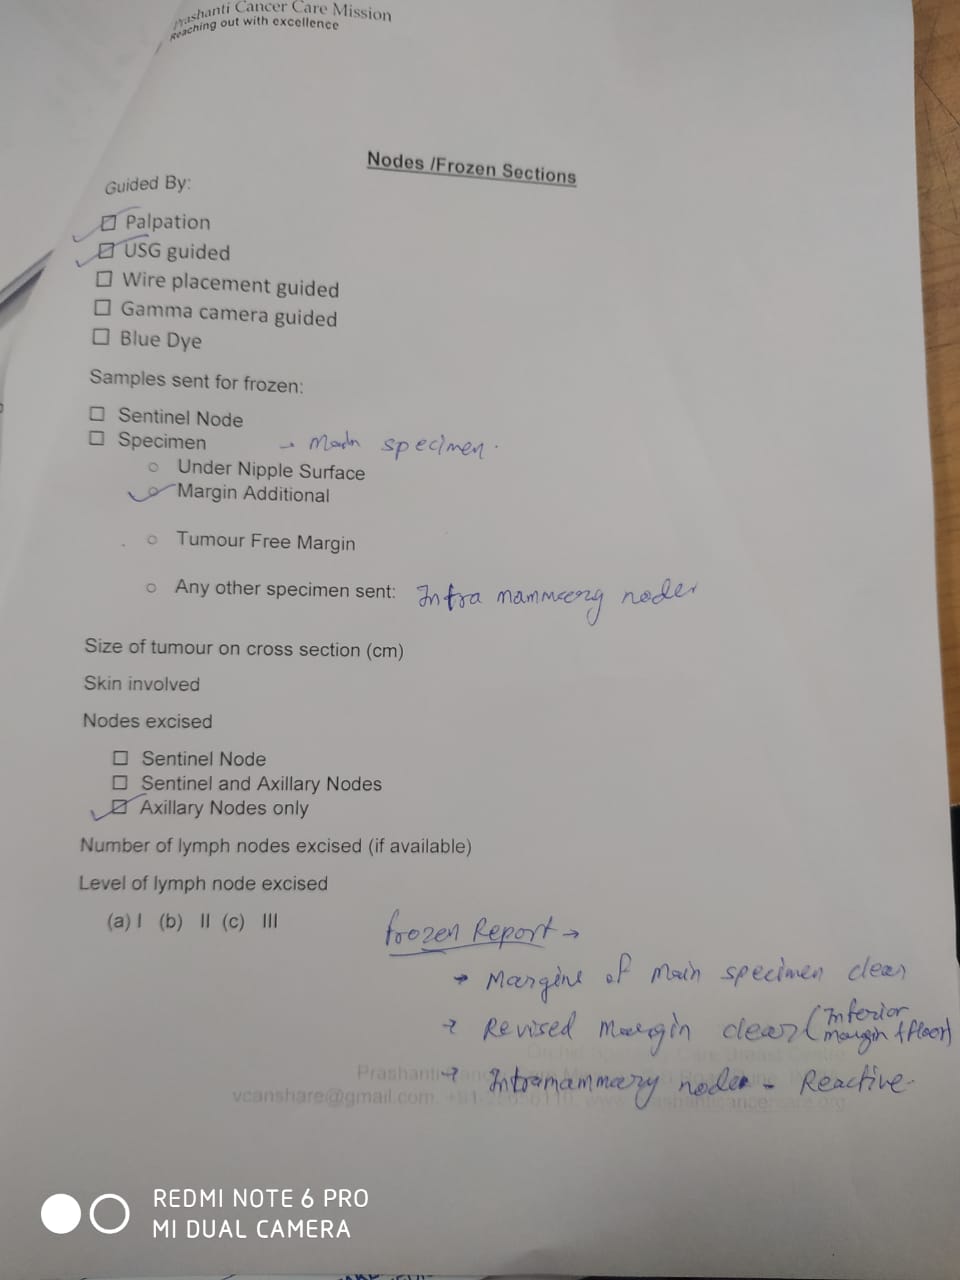 Prashanti Cancer Care Mission
Reaching out with excellence
Nodes /Frozen Sections
Guided By:
Palpation
USG guided
Wire placement guided
Gamma camera guided
Blue Dye
Samples sent for frozen:
Sentinel Node
Specimen → Main specimen.
Under Nipple Surface
Margin Additional
Tumour Free Margin
Any other specimen sent: Intra mammary nodes
Size of tumour on cross section (cm)
Skin involved
Nodes excised
Sentinel Node
Sentinel and Axillary Nodes
Axillary Nodes only
Number of lymph nodes excised (if available)
Level of lymph node excised
(a) I (b) II (c) III
frozen Report →
→ Margins of main specimen clear
→ Revised margin clear (Inferior margin + floor)
→ Intramammary node - Reactive.
Prashanti
vcanshare@gmail.com
REDMI NOTE 6 PRO
MI DUAL CAMERA